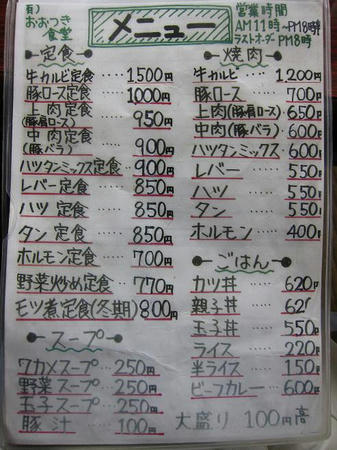 おおつき
食堂
メニュー
営業時間
AM11時〜PM8時半
ラストオーダーPM8時
定食
牛カルビ定食…1,500円
豚ロース定食…1000円
上肉定食…950円
(豚肩ロース)
中肉定食…900円
(豚バラ)
ハツタンミックス定食…900円
レバー定食…850円
ハツ定食…850円
タン定食…850円
ホルモン定食…700円
野菜炒め定食…770円
モツ煮定食(冬期)800円
スープ
ワカメスープ…250円
野菜スープ…250円
玉子スープ…250円
豚汁…100円
焼肉
牛カルビ…1,200円
豚ロース…700円
上肉(豚肩ロース)…650円
中肉(豚バラ)…600円
ハツタンミックス…600円
レバー…550円
ハツ…550円
タン…550円
ホルモン…400円
ごはん
カツ丼…620円
親子丼…620円
玉子丼…550円
ライス…220円
半ライス…150円
ビーフカレー…600円
大盛り 100円高